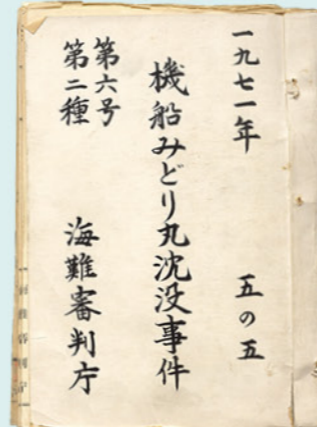 一九七一年 五の五
機船みどり丸沈没事件
第六号
第二種
海難審判庁